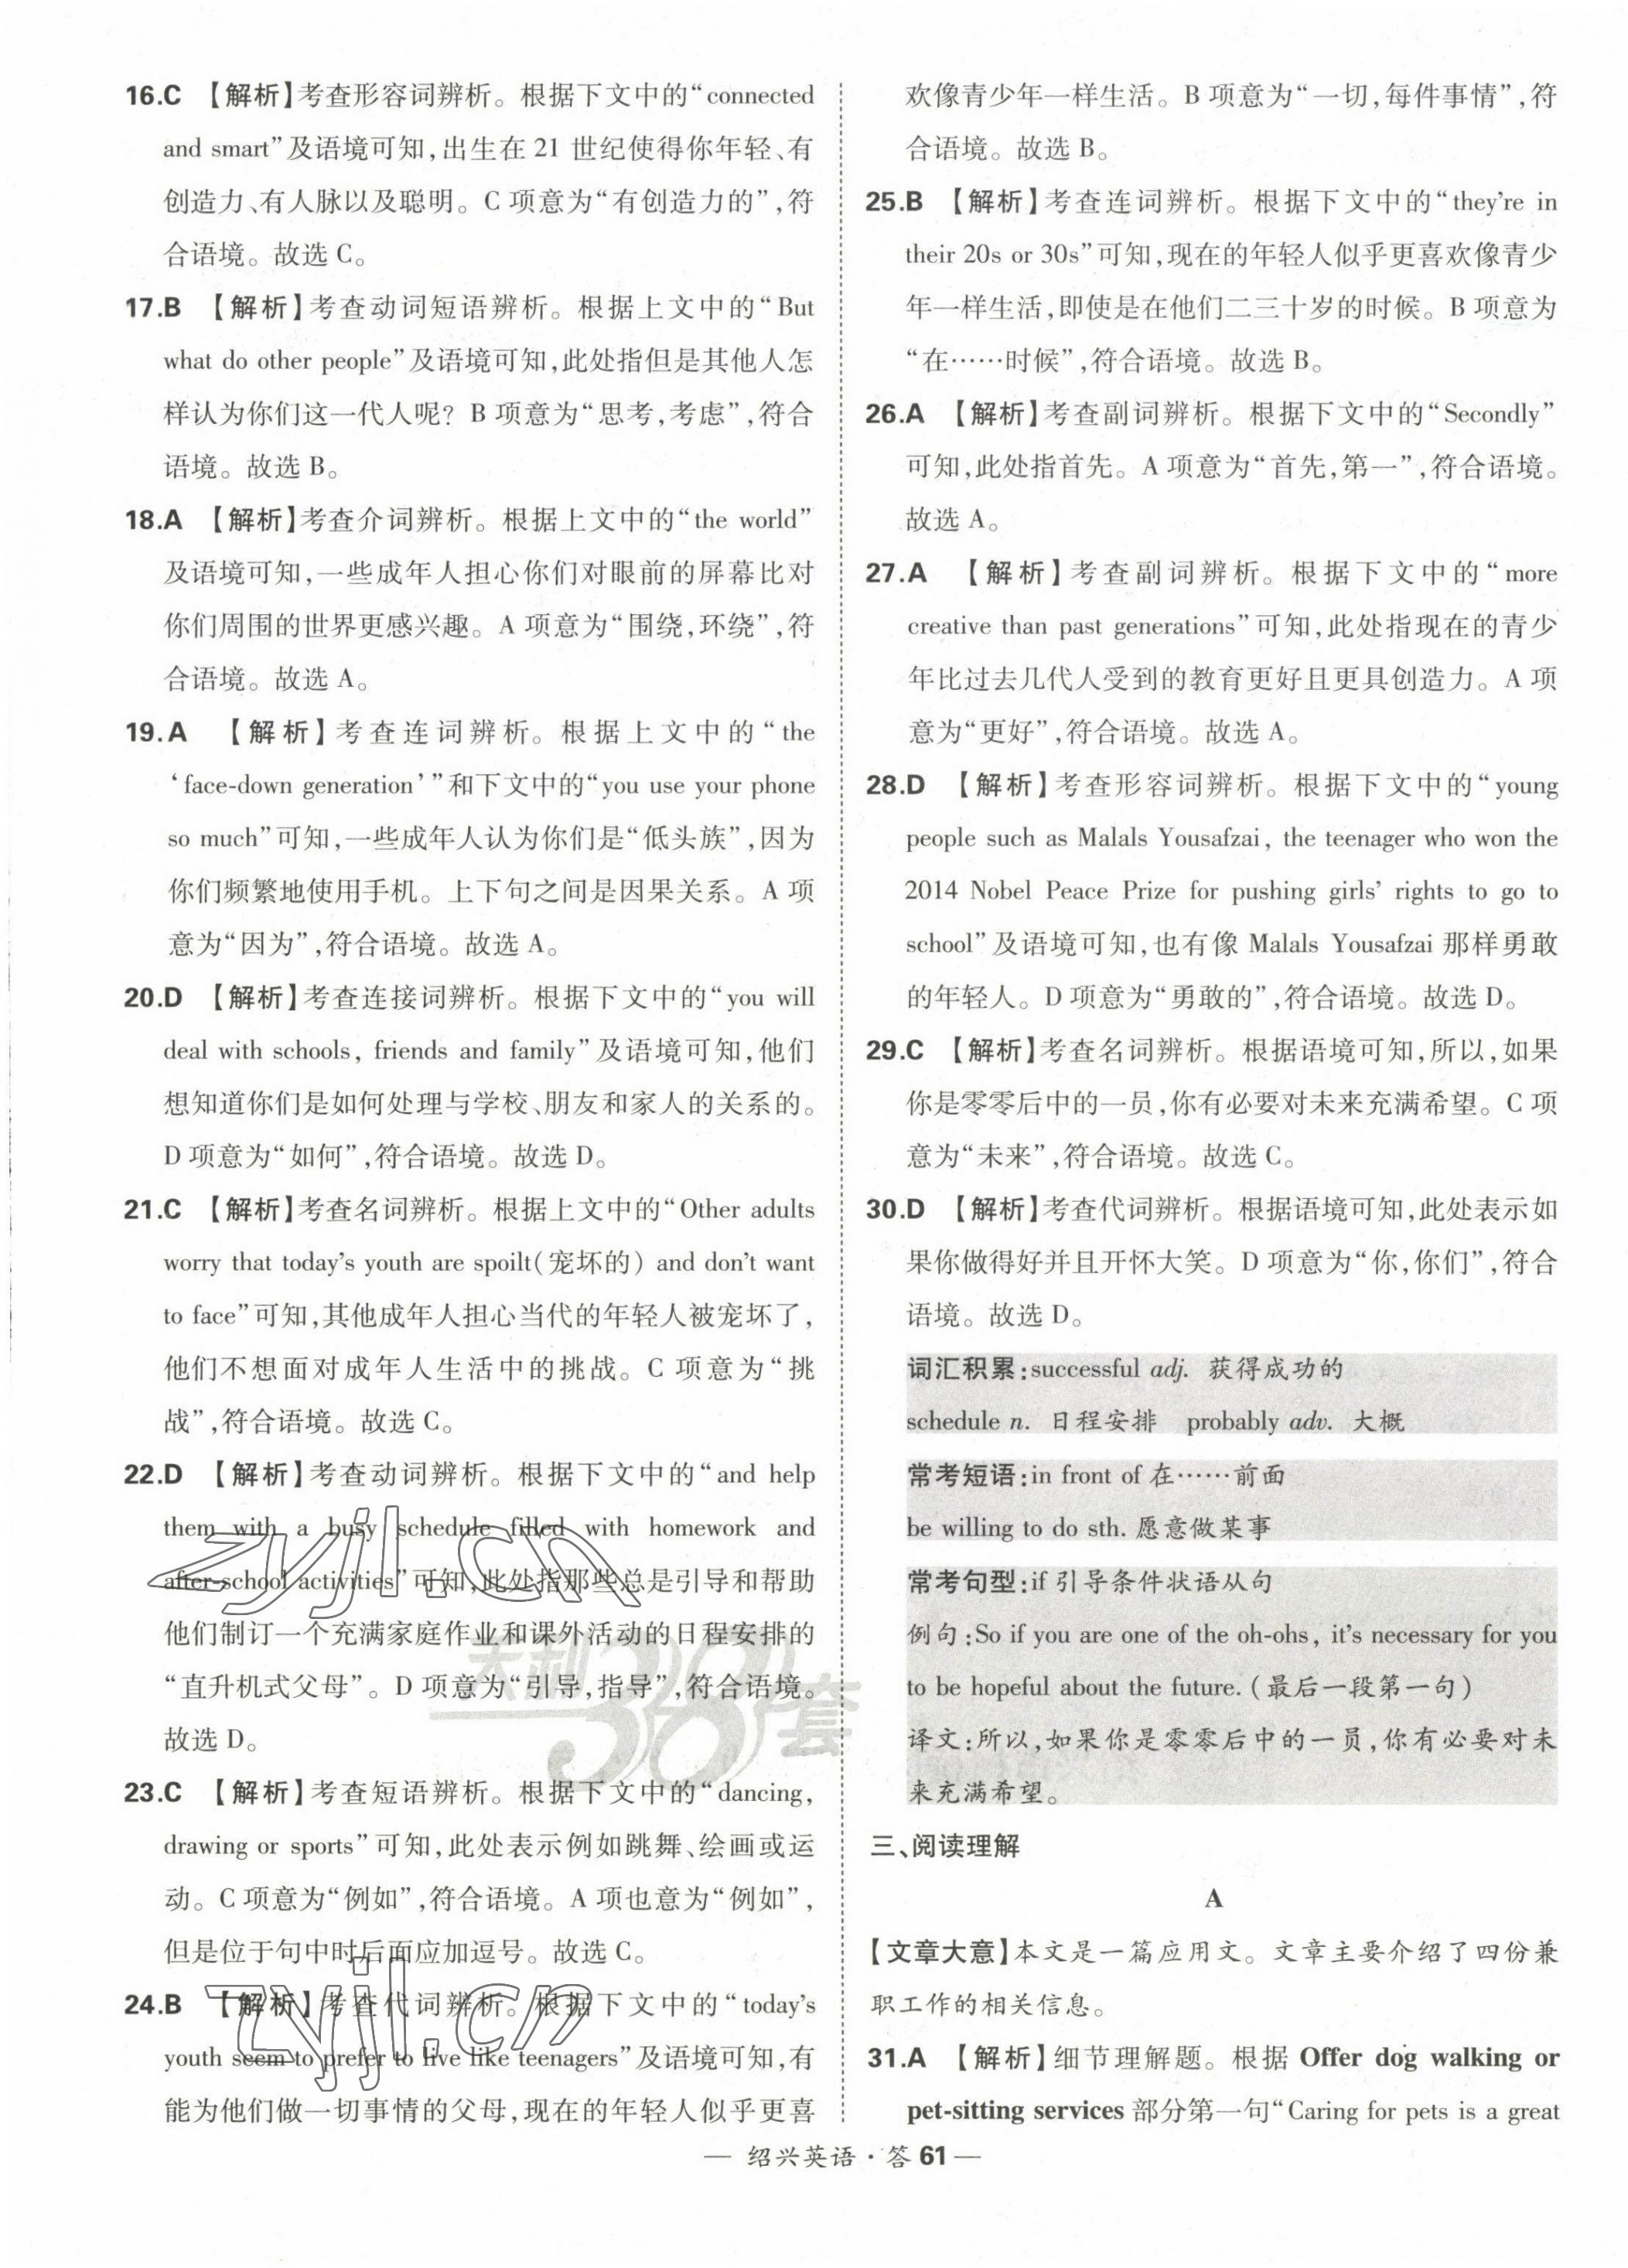 16.C 【解析】考查形容词辨析。根据下文中的“connected
and smart”及语境可知,出生在 21 世纪使得你年轻、有
创造力、有人脉以及聪明。C 项意为“有创造力的”,符
合语境。故选 C。
17.B 【解析】考查动词短语辨析。根据上文中的“But
what do other people”及语境可知,此处指但是其他人怎
样认为你们这一代人呢? B 项意为“思考,考虑”,符合
语境。故选 B。
18.A 【解析】考查介词辨析。根据上文中的“the world”
及语境可知,一些成年人担心你们对眼前的屏幕比对
你们周围的世界更感兴趣。A 项意为“围绕,环绕”,符
合语境。故选 A。
19.A 【解析】考查连词辨析。根据上文中的“the
‘face-down generation’”和下文中的“you use your phone
so much”可知,一些成年人认为你们是“低头族”,因为
你们频繁地使用手机。上下句之间是因果关系。A 项
意为“因为”,符合语境。故选 A。
20.D 【解析】考查连接词辨析。根据下文中的“you will
deal with schools, friends and family”及语境可知,他们
想知道你们是如何处理与学校、朋友和家人的关系的。
D 项意为“如何”,符合语境。故选 D。
21.C 【解析】考查名词辨析。根据上文中的“Other adults
worry that today's youth are spoilt(宠坏的) and don't want
to face”可知,其他成年人担心当代的年轻人被宠坏了,
他们不想面对成年人生活中的挑战。C 项意为“挑
战”,符合语境。故选 C。
22.D 【解析】考查动词辨析。根据下文中的“and help
them with a busy schedule filled with homework and
after-school activities”可知,此处指那些总是引导和帮助
他们制订一个充满家庭作业和课外活动的日程安排的
“直升机式父母”。D 项意为“引导,指导”,符合语境。
故选 D。
23.C 【解析】考查短语辨析。根据下文中的“dancing,
drawing or sports”可知,此处表示例如跳舞、绘画或运
动。C 项意为“例如”,符合语境。A 项也意为“例如”,
但是位于句中时后面应加逗号。故选 C。
24.B 【解析】考查代词辨析。根据下文中的“today's
youth seem to prefer to live like teenagers”及语境可知,有
能为他们做一切事情的父母,现在的年轻人似乎更喜
欢像青少年一样生活。B 项意为“一切,每件事情”,符
合语境。故选 B。
25.B 【解析】考查连词辨析。根据下文中的“they're in
their 20s or 30s”可知,现在的年轻人似乎更喜欢像青少
年一样生活,即使是在他们二三十岁的时候。B 项意为
“在……时候”,符合语境。故选 B。
26.A 【解析】考查副词辨析。根据下文中的“Secondly”
可知,此处指首先。A 项意为“首先,第一”,符合语境。
故选 A。
27.A 【解析】考查副词辨析。根据下文中的“more
creative than past generations”可知,此处指现在的青少
年比过去几代人受到的教育更好且更具创造力。A 项
意为“更好”,符合语境。故选 A。
28.D 【解析】考查形容词辨析。根据下文中的“young
people such as Malals Yousafzai, the teenager who won the
2014 Nobel Peace Prize for pushing girls' rights to go to
school”及语境可知,也有像 Malals Yousafzai 那样勇敢
的年轻人。D 项意为“勇敢的”,符合语境。故选 D。
29.C 【解析】考查名词辨析。根据语境可知,所以,如果
你是零零后中的一员,你有必要对未来充满希望。C 项
意为“未来”,符合语境。故选 C。
30.D 【解析】考查代词辨析。根据语境可知,此处表示如
果你做得好并且开怀大笑。D 项意为“你,你们”,符合
语境。故选 D。
词汇积累:successful adj. 获得成功的
schedule n. 日程安排 probably adv. 大概
常考短语:in front of 在……前面
be willing to do sth. 愿意做某事
常考句型:if 引导条件状语从句
例句:So if you are one of the oh-ohs, it's necessary for you
to be hopeful about the future.(最后一段第一句)
译文:所以,如果你是零零后中的一员,你有必要对未
来充满希望。
三、阅读理解
A
【文章大意】本文是一篇应用文。文章主要介绍了四份兼
职工作的相关信息。
31.A 【解析】细节理解题。根据 Offer dog walking or
pet-sitting services 部分第一句“Caring for pets is a great
— 绍兴英语·答 61 —
zyjl.cn
天利38套
zyjl.cn